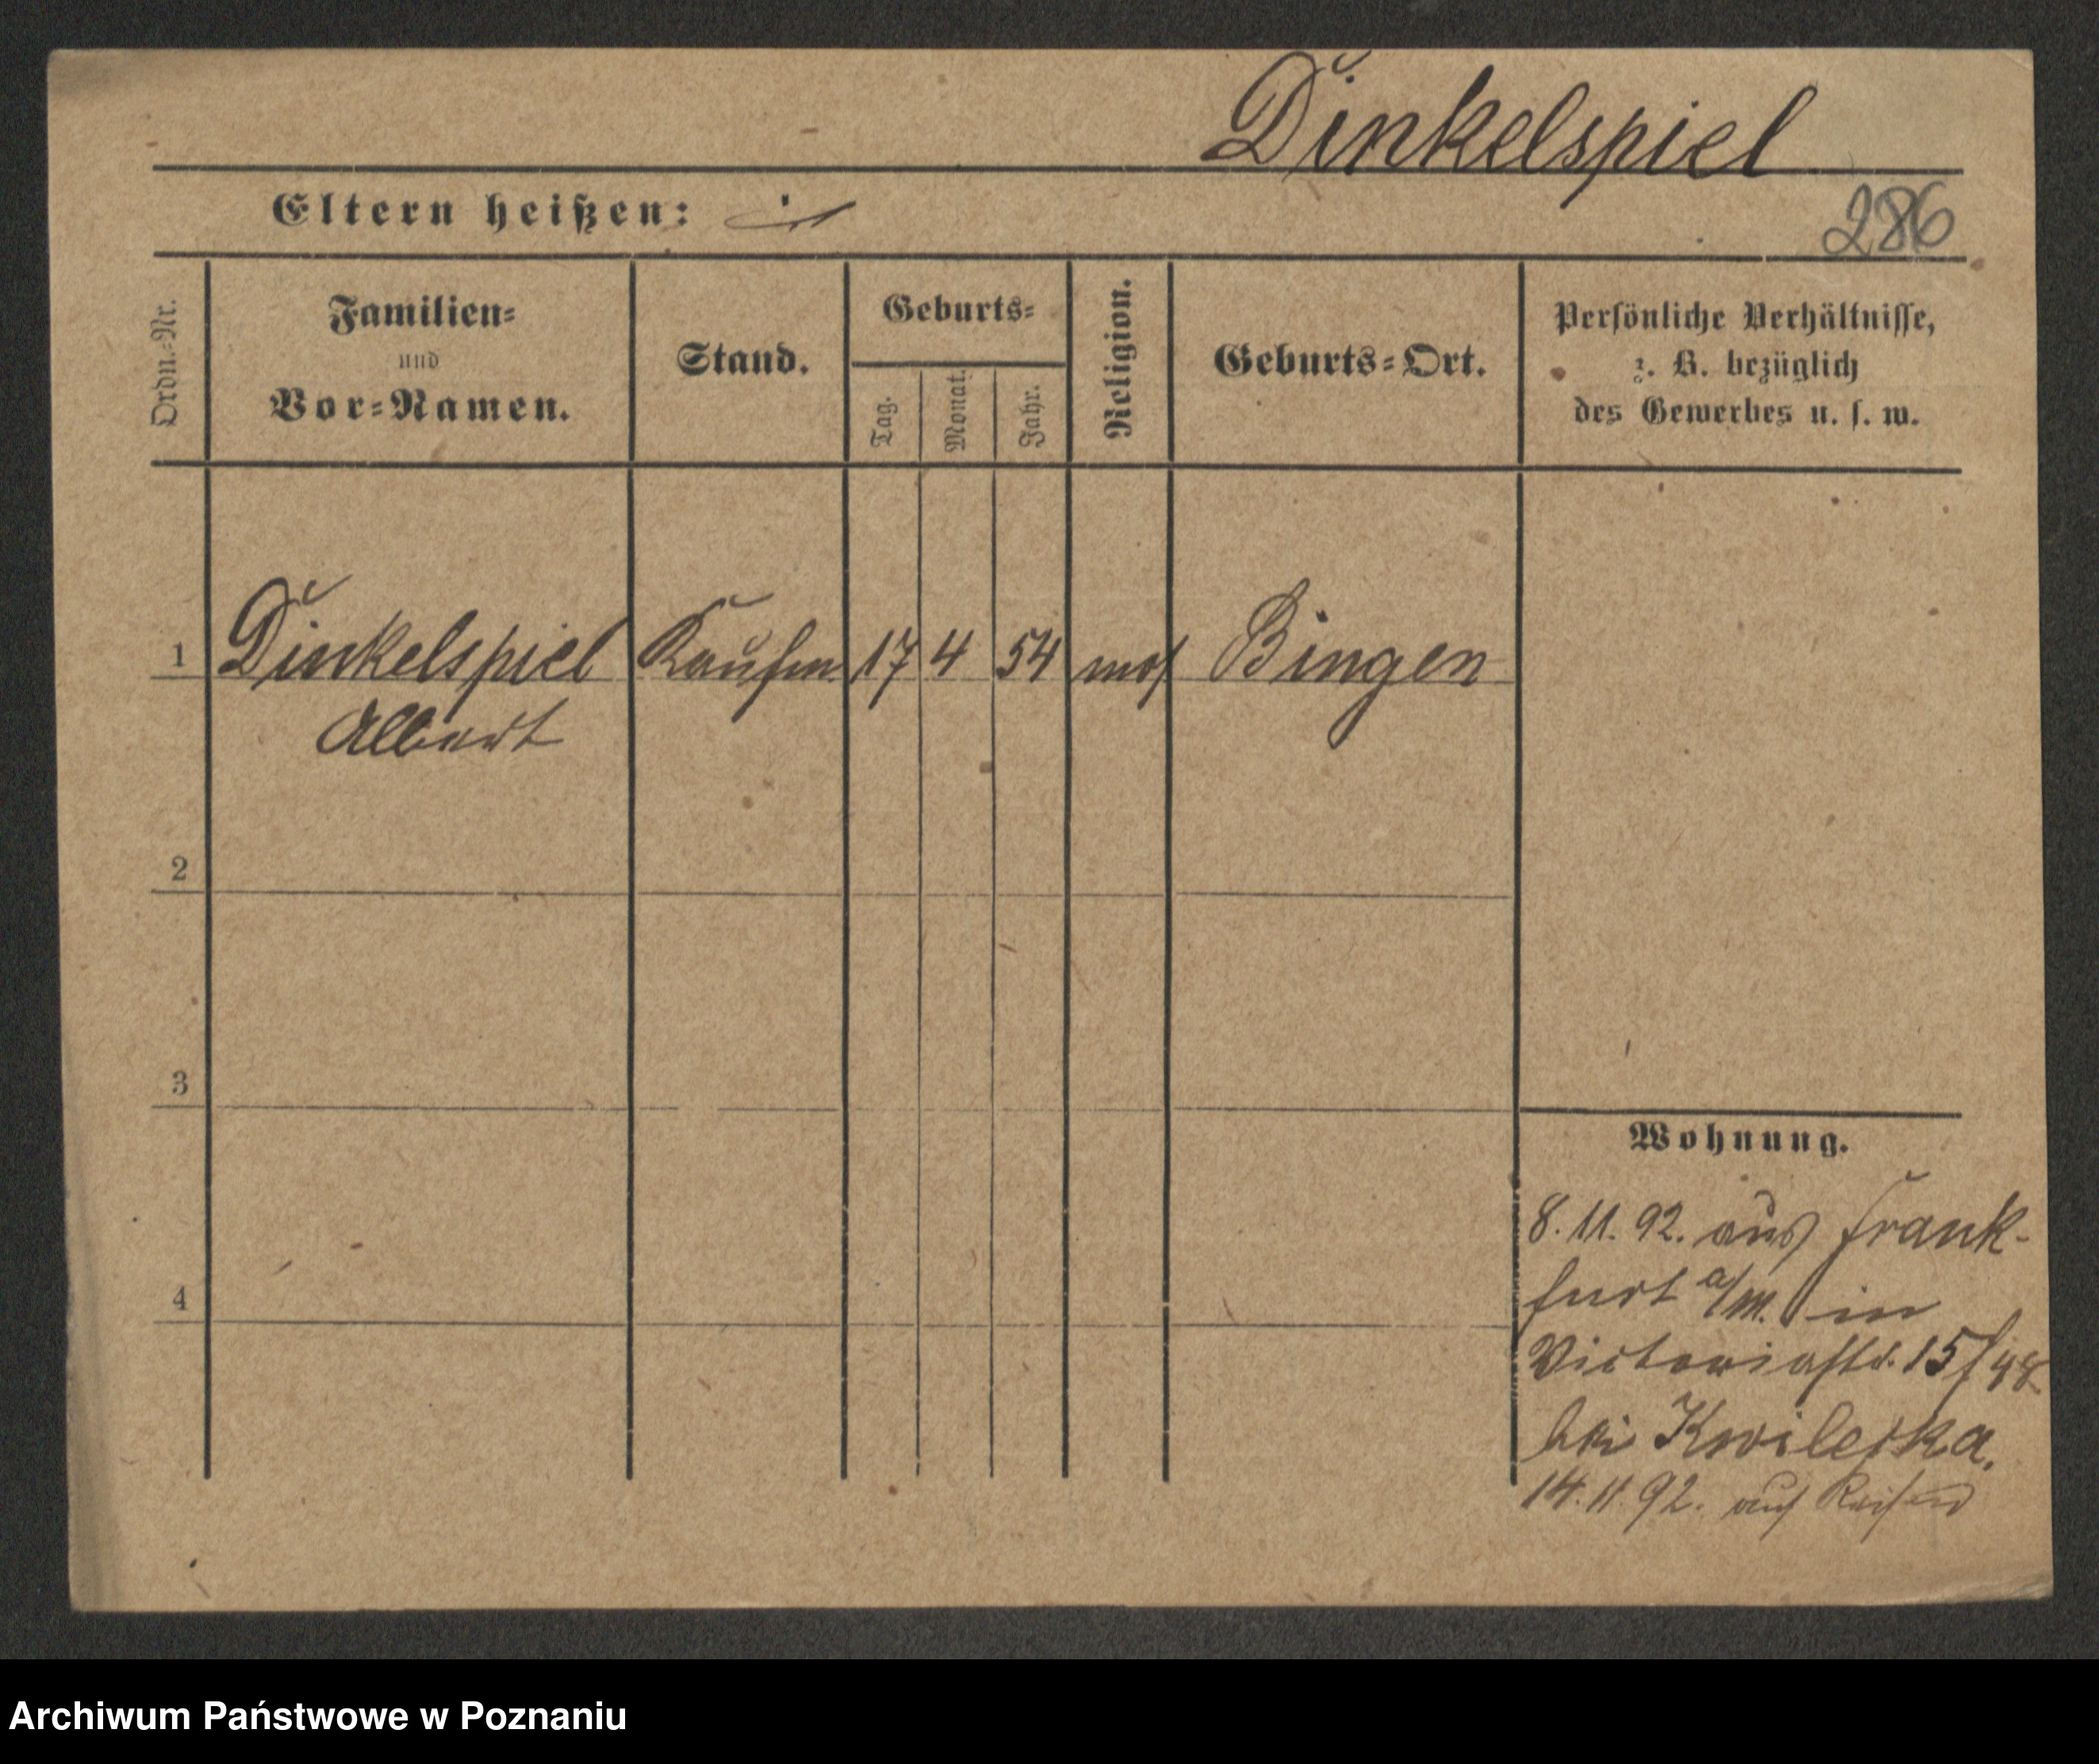 Dinkelspiel
Eltern heißen:
286
Ordn.-Nr.
Familien-
und
Vor-Namen.
Stand.
Geburts-
Tag.
Monat.
Jahr.
Religion.
Geburts-Ort.
Persönliche Verhältnisse,
z. B. bezüglich
des Gewerbes u. s. w.
1 Dinkelspiel Kaufm 17 4 54 mos Bingen
Albert
2
3
4
Wohnung.
8. 11. 92. aus Frank-
furt a/M. in
Victoriastr. 15/
bei Kwileska.
14. 11. 92. auf Reisen
Archiwum Państwowe w Poznaniu